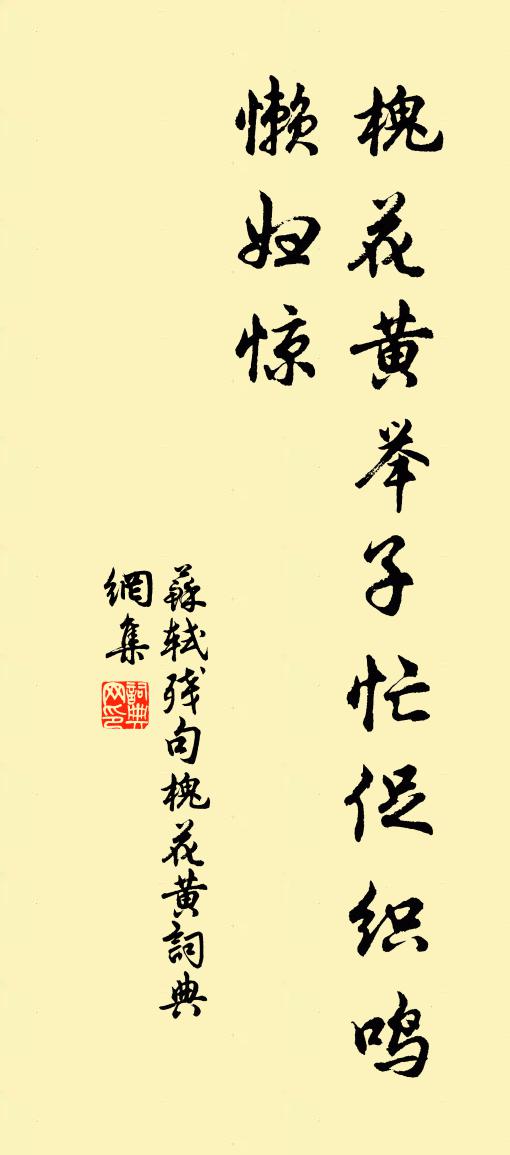 槐花黄举子忙促织鸣
懒妇惊
蘇轼残句槐花黄詞典
網集
詞典
网印